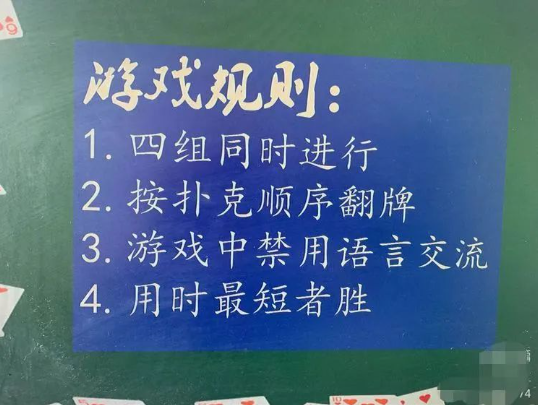 游戏规则：
1. 四组同时进行
2. 按扑克顺序翻牌
3. 游戏中禁用语言交流
4. 用时最短者胜